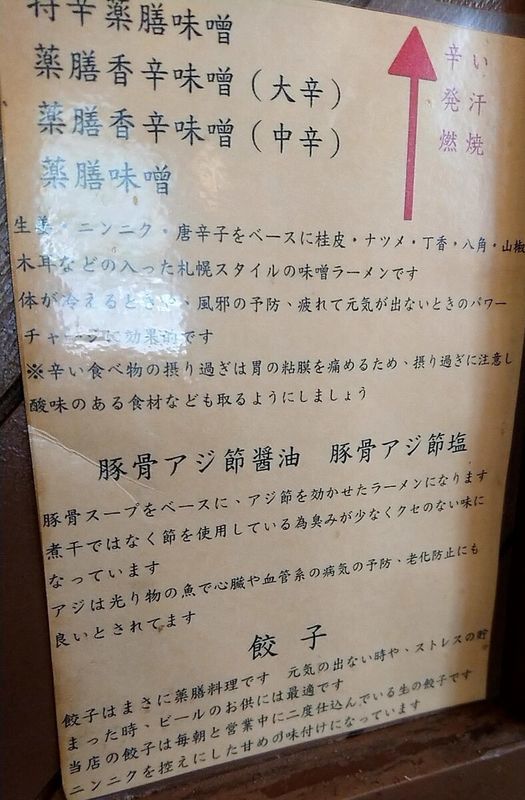 特辛薬膳味噌
薬膳香辛味噌(大辛)
薬膳香辛味噌(中辛)
薬膳味噌
辛い
発汗
燃焼
生姜・ニンニク・唐辛子をベースに桂皮・ナツメ・丁香・八角・山椒
木耳などの入った札幌スタイルの味噌ラーメンです
体が冷えるときや、風邪の予防、疲れて元気が出ないときのパワー
チャージに効果的です
※辛い食べ物の摂り過ぎは胃の粘膜を痛めるため、摂り過ぎに注意し
酸味のある食材なども取るようにしましょう
豚骨アジ節醤油 豚骨アジ節塩
豚骨スープをベースに、アジ節を効かせたラーメンになります
煮干ではなく節を使用している為臭みが少なくクセのない味に
なっています
アジは光り物の魚で心臓や血管系の病気の予防、老化防止にも
良いとされてます
餃子
餃子はまさに薬膳料理です 元気の出ない時や、ストレスの貯
まった時、ビールのお供には最適です
当店の餃子は毎朝と営業中に二度仕込んでいる生の餃子です
ニンニクを控えにした甘めの味付けになっています